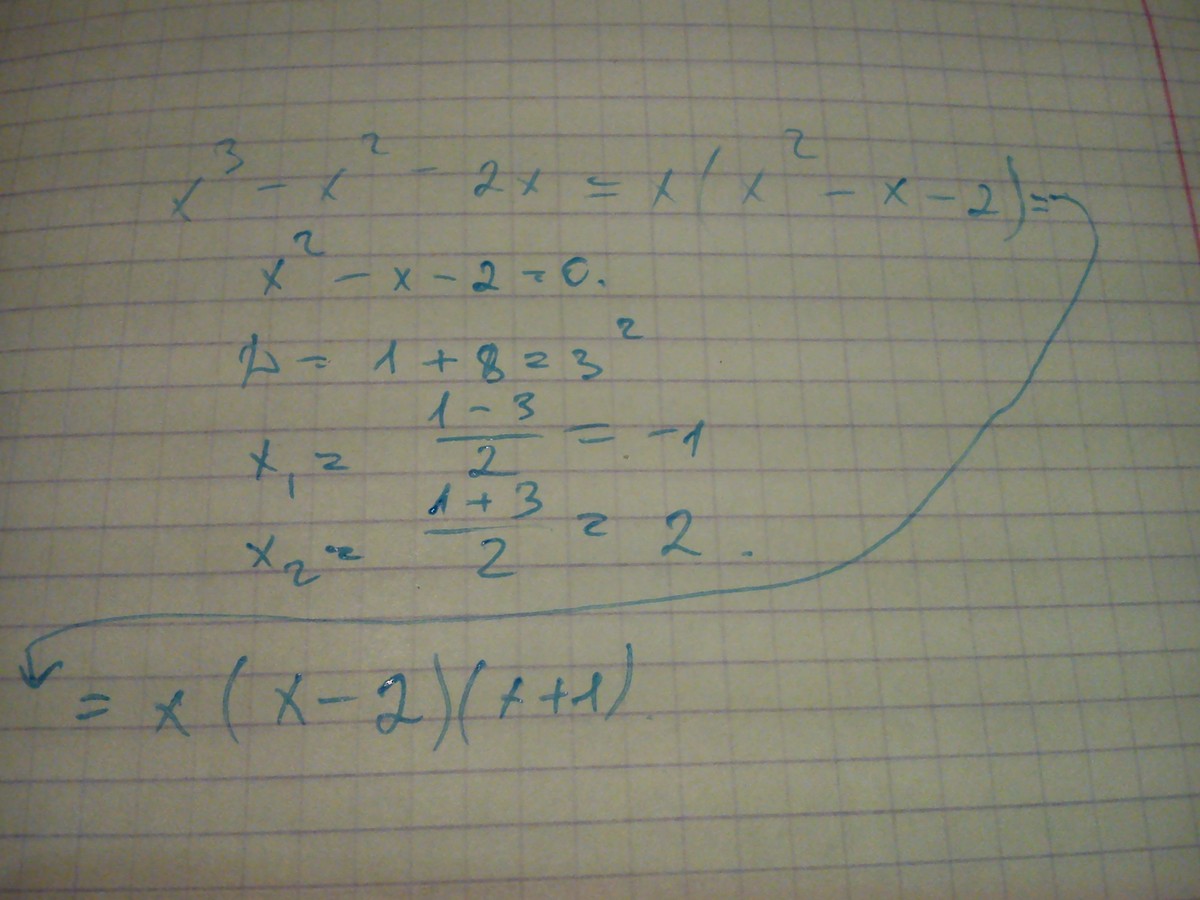 x³ - x² - 2x = x(x² - x - 2) =
x² - x - 2 = 0.
D = 1 + 8 = 3²
x₁ = (1 - 3)/2 = -1
x₂ = (1 + 3)/2 = 2.
= x(x - 2)(x + 1)